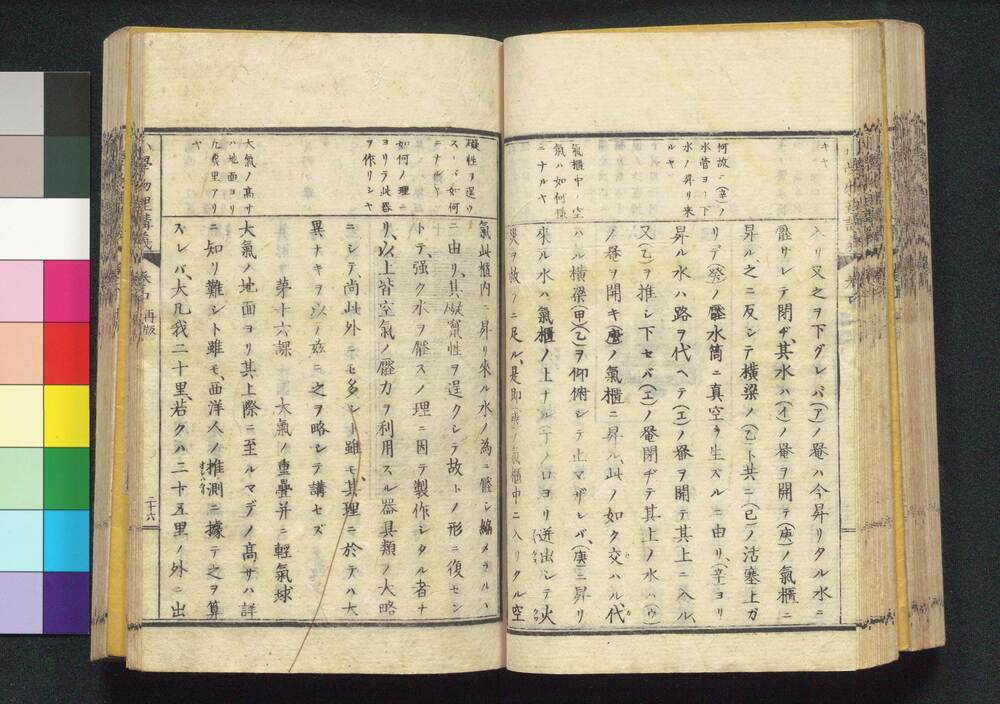 キヤ
何故ニ(辛)ノ
水管ヨリ下
水ノ昇リ来
ルヤ
氣櫃中ノ空
氣ハ如何様
ニナルヤ
入リ又之ヲ下グレバ(ア)ノ罨ハ今昇リタル水ニ
壓サレテ閉ヂ、其水ハ(イ)ノ罨ヲ開テ(庚)ノ氣櫃ニ
昇ル、之ニ反シテ横梁ノ(乙)ト共ニ(己)ノ活塞上ガ
リテ(癸)ノ壓水筒ニ真空ヲ生スルニ由リ、(辛)ヨリ
昇ル水ハ路ヲ代ヘテ(エ)ノ罨ヲ開テ其上ニ入ル、
又(乙)ヲ推シ下セバ(エ)ノ罨閉ヂテ其上ノ水ハ(ウ)
ノ罨ヲ開キ(庚)ノ氣櫃ニ昇ル、此ノ如ク交ハル代
ハル横梁(甲)(乙)ヲ仰俯シテ止マザレバ、(庚)ニ昇リ
來ル水ハ氣櫃ノ上ナル
ノ口ヨリ迸出シテ火
ヲ救フニ足ル、是即
氣櫃中ニ入リタル空
凝性ヲ逞ウ
スレバ如何
ニナルヤ
如何ノ理ニ
ヨリテ此器
ヲ作リシヤ
大氣ノ高サ
ハ地面ヨリ
凡幾里アリ
ヤ
氣此櫃内ニ昇リ來ル水ノ為ニ壓シ縮メラルヽ
ニ由リ、其
性ヲ逞クシテ故トノ形ニ復セン
トテ、强ク水ヲ壓スノ理ニ因テ製作シタル者ナ
リ、以上皆空氣ノ壓力ヲ利用スル器具類ノ大略
ニシテ、尚此外ニモ多シト雖モ、其理ニ於テハ大
異ナキヲ以ノ故ニ之ヲ略シテ講セズ
第十六課 大氣ノ重疊并ニ輕氣球
大氣ノ地面ヨリ其上際ニ至ルマデノ高サハ詳
ニ知リ難シト雖モ、西洋人ノ推測ニ據テ之ヲ算
スレバ、大凡我二十里、若クハ二十五里ノ外ニ出
小學物理講義 卷中 再版
二十六